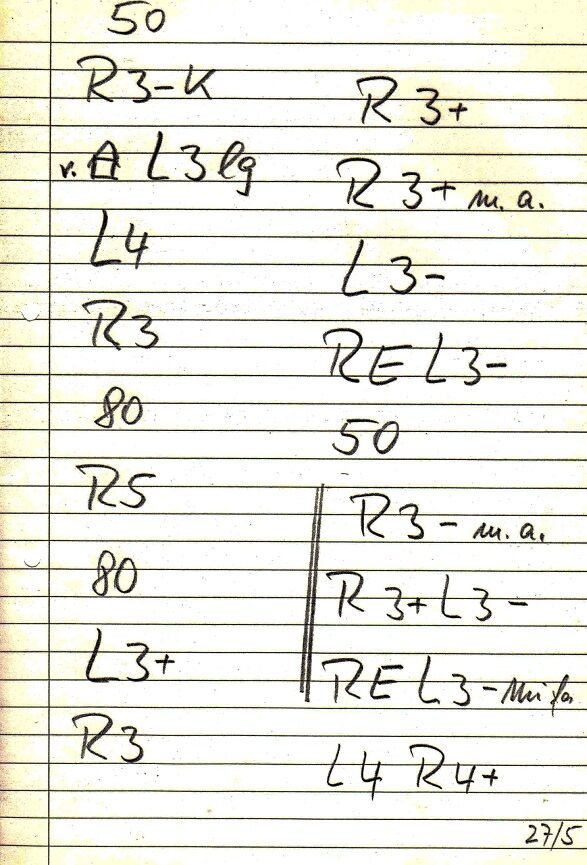 50
R3-K
v. A L3 lg
L4
R3
80
R5
80
L3+
R3
R3+
R3+ m.a.
L3-
RE L3-
50
R3- m.a.
R3+ L3-
RE L3-
L4 R4+
27/5